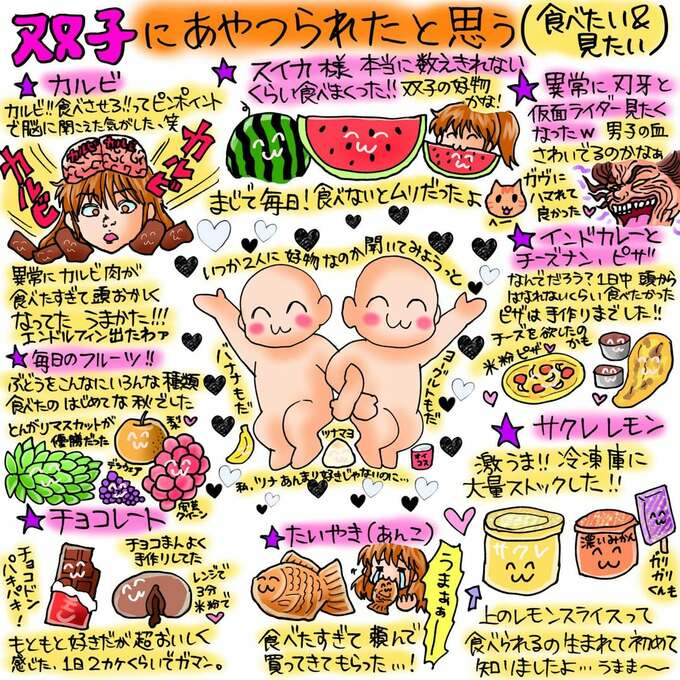 双子にあやつられたと思う(食べたい&見たい)
★カルビ
カルビ!!食べさせろ!!ってピンポイント
で脳に聞こえた気がした、笑
カルビ
カルビ
カルビ カルビ
異常にカルビ肉が
食べたすぎて頭おかしく
なってた うまかた!!!
エンドルフィン出たわァ
★スイカ様 本当に数えきれない
くらい食べまくった!! 双子の好物
かな!
まじで毎日!食べないとムリだったよ
★異常に刃牙と
仮面ライダー見たく
なったw 男子の血
さわいでるのかなぁ
ガヴに
ハマれて
良かった!
いつか2人に好物なのか聞いてみようっと
バナナもだ
ヨーグルトもだ
ツナマヨ
オイコス
私、ツナあんまり好きじゃないのに…
★インドカレーと
チーズナン、ピザ
なんでだろう?1日中頭から
はなれないくらい食べたかった
ピザは手作りまでした!!
チーズを欲したの
かも
米粉ピザ
★毎日のフルーツ!!
ぶどうをこんなにいろんな種類
食べたのはじめてな秋でした
とんがりマスカットが
優勝だった
梨
デラウェア
クイーン
★サクレレモン
激うま!!冷凍庫に
大量ストックした!!
サクレ
濃いみかん
ガリガリくんも
上のレモンスライスって
食べられるの生まれて初めて
知りましたよ…うまま〜
★チョコレート
チョコドン
パキパキ!
チョコまんよく
手作りしてた
レンジで
3分
米粉で
もともと好きだが超おいしく
感じた、1日2カケくらいでガマン。
★たいやき(あんこ)
うまぁぁ
食べたすぎて頼んで
買ってきてもらった…!